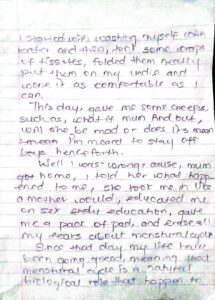 I started with washing myself with
water and then, took some wraps
of tissues, folded them neatly
put them on my undie and
wore it as comfortable as I
can.
"This day, gave me some creeps,
such as, what if mum find out,
will she be mad or does it mean
I'm meant to stay off
boys henceforth.
Well I was wrong cause, mum
got home, I told her what happ-
ened to me, she took me in like
a mother would, educated me
on sex education, gave
me a pack of pad, and erase all
my fears about menstrual cycle.
Since that day my life have
been going good, meaning that
menstrual cycle is a natural
biological role that happen to